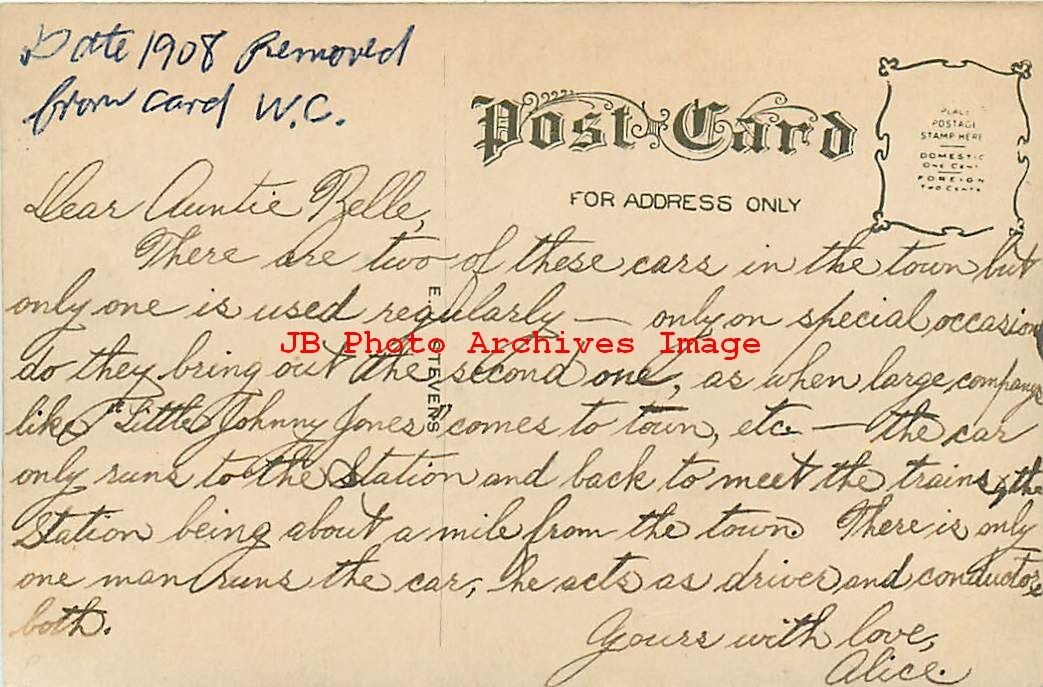 Date 1908 Removed
from card W.C.
Post Card
FOR ADDRESS ONLY
PLACE
POSTAGE
STAMP HERE
DOMESTIC
ONE CENT
FOREIGN
TWO CENTS
Dear Auntie Belle,
There are two of these cars in the town but
only one is used regularly — only on special occasion
do they bring out the second one, as when large companys
like "Little Johnny Jones" comes to town, etc — the car
only runs to the Station and back to meet the trains, the
Station being about a mile from the town. There is only
one man runs the car, he acts as driver and conductor
both.
Yours with love,
Alice.
E. STEVENS
JB Photo Archives Image